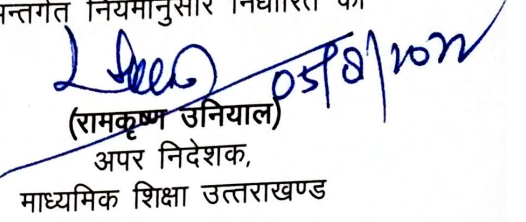 न्तर्गत नियमानुसार निर्धारित की
05/8/2022
(रामकृष्ण उनियाल)
अपर निदेशक,
माध्यमिक शिक्षा उत्तराखण्ड